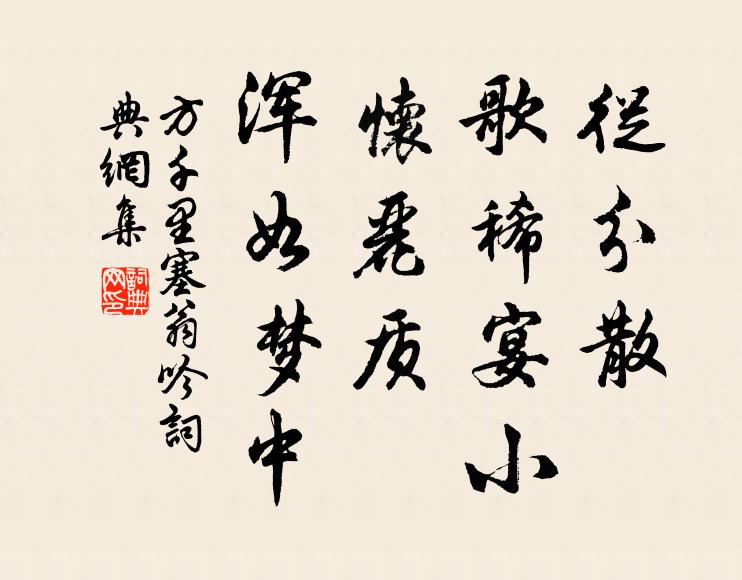 從分散
歌稀宴小
懷麗质
浑如梦中
方千里塞翁吟詞
典網集
詞典網印